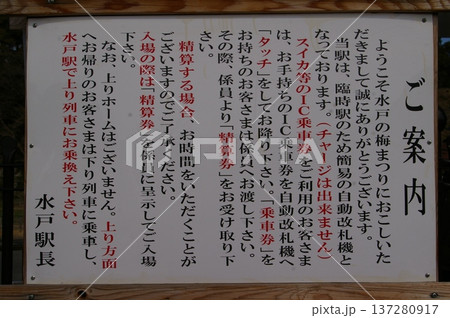 ご案内
ようこそ水戸の梅まつりにおこしいた
だきまして誠にありがとうございます。
当駅は、臨時駅のため簡易の自動改札機と
なっております。(チャージは出来ません)
スイカ等のIC乗車券をご利用のお客さま
は、お手持ちのIC乗車券を自動改札機へ
「タッチ」をしてお降り下さい。「乗車券」を
お持ちのお客さまは係員へお渡し下さい。
その際、係員より「精算券」をお受け取り下
さい。
精算する場合、お時間をいただくことが
ございますのでご了承ください。
入場の際は「精算券」を係員に呈示してご入場
下さい。
なお、上りホームはございません。上り方面
へお帰りのお客さまは下り列車に乗車し、
水戸駅で上り列車にお乗換え下さい。
水戸駅長
137280917